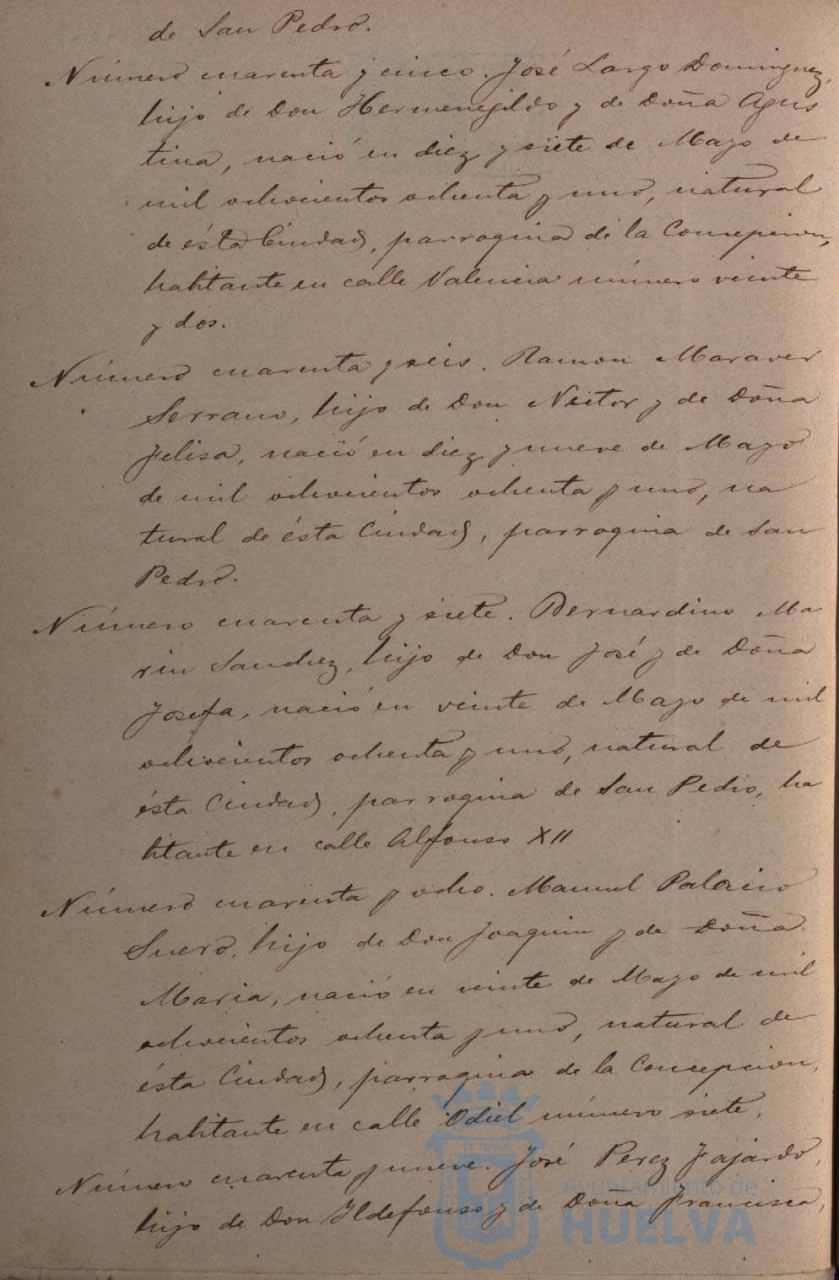 de San Pedro.
Número cuarenta y cinco. José Largo Dominguez,
hijo de Don Hermenegildo y de Doña Agus
tina, nació en diez y siete de Mayo de
mil ochocientos ochenta y uno, natural
de ésta Ciudad, parroquia de la Concepcion,
habitante en calle Valencia número veinte
y dos.
Número cuarenta y seis. Ramon Maraver
Serrano, hijo de Don Nestor y de Doña
Felisa, nació en diez y nueve de Mayo
de mil ochocientos ochenta y uno, na
tural de ésta Ciudad, parroquia de San
Pedro.
Número cuarenta y siete. Bernardino Ma
rin Sanchez, hijo de Don José y de Doña
Josefa, nació en veinte de Mayo de mil
ochocientos ochenta y uno, natural de
ésta Ciudad, parroquia de San Pedro, ha
bitante en calle Alfonso XII
Número cuarenta y ocho. Manuel Palacino
Suero, hijo de Don Joaquin y de Doña
Maria, nació en veinte de Mayo de mil
ochocientos ochenta y uno, natural de
ésta Ciudad, parroquia de la Concepcion,
habitante en calle Odiel número siete.
Número cuarenta y nueve. José Perez Fajardo,
hijo de Don Ildefonso y de Doña Francisca,
Ayuntamiento de
HUELVA